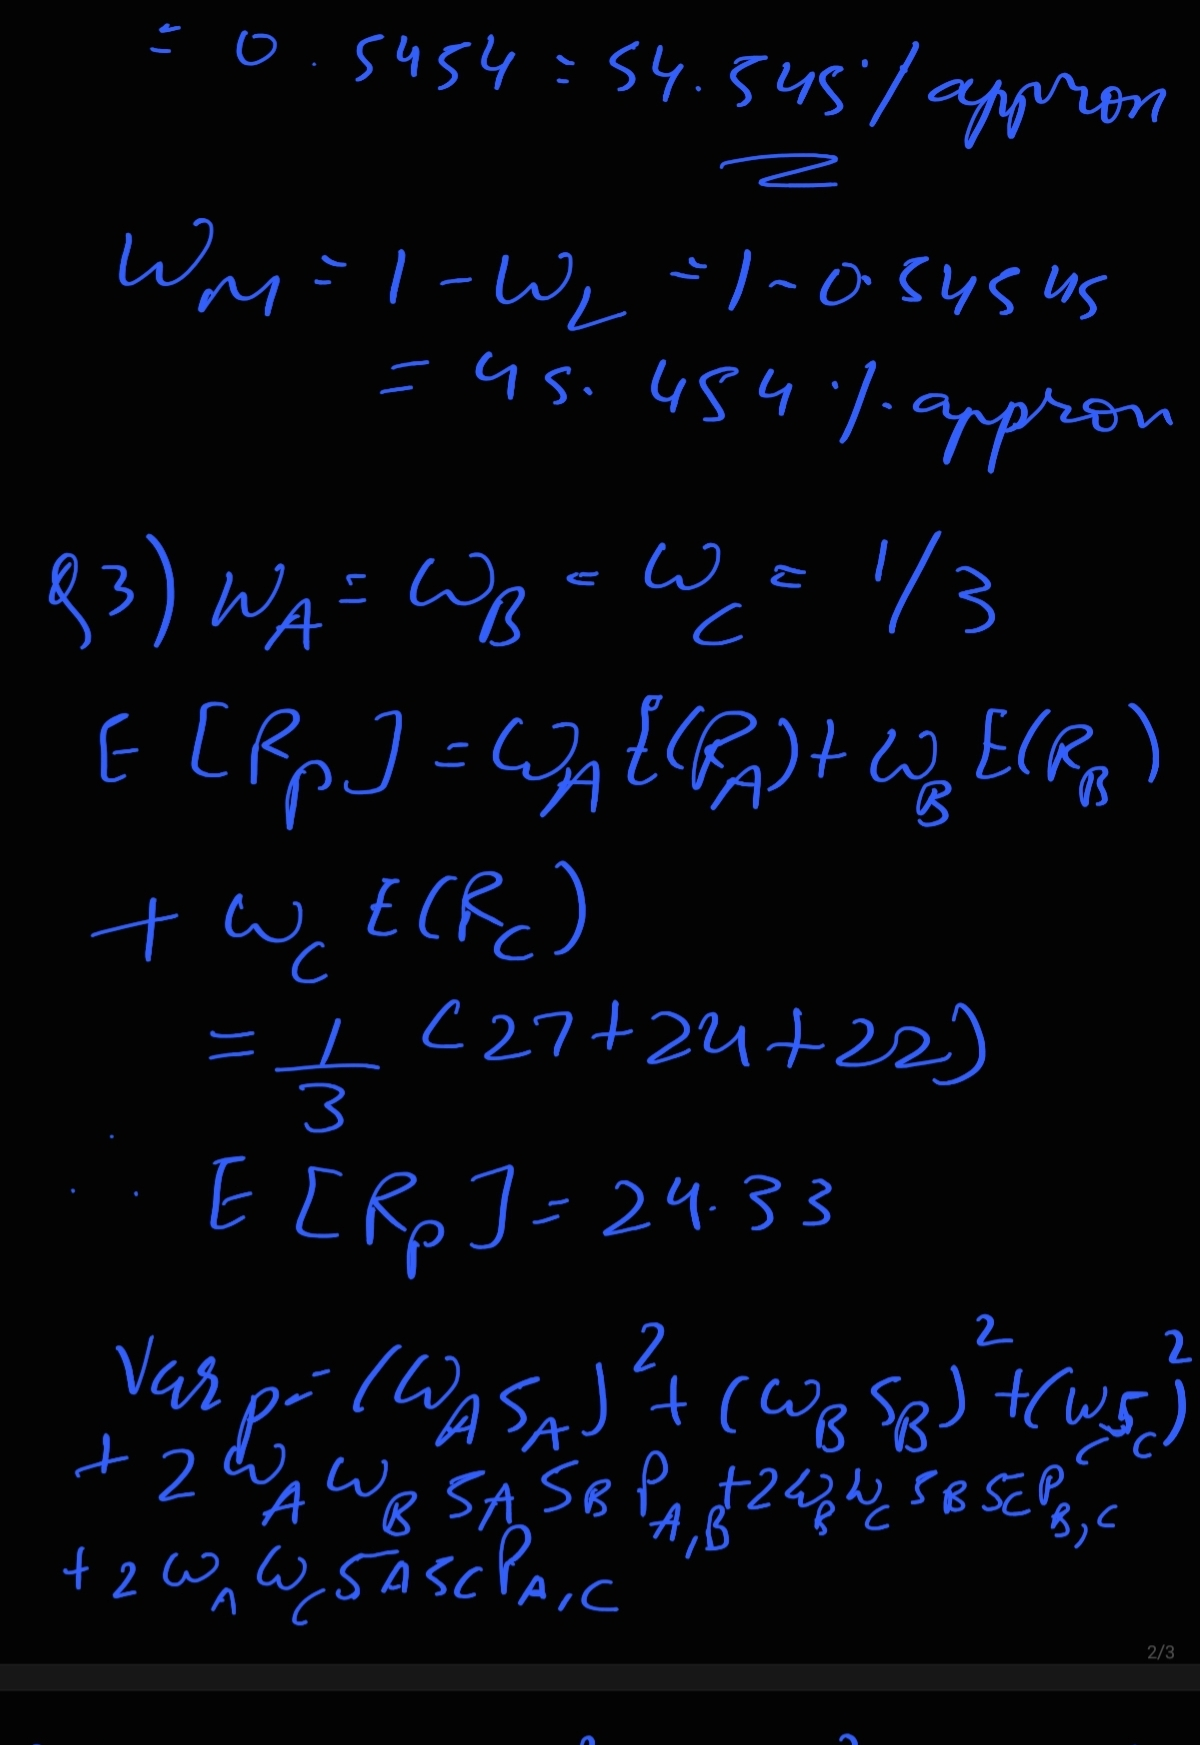 = 0.5454 = 54.545% approx
W_M = 1 - W_L = 1 - 0.54545
= 45.454 % approx
Q3) W_A = W_B = W_C = 1/3
E[R_p] = W_A E(R_A) + W_B E(R_B)
+ W_C E(R_C)
= 1/3 (27+24+22)
∴ E[R_p] = 24.33
Var_p = (W_A S_A)² + (W_B S_B)² + (W_C S_C)²
+ 2 W_A W_B S_A S_B P_A,B + 2 W_B W_C S_B S_C P_B,C
+ 2 W_A W_C S_A S_C P_A,C
2/3